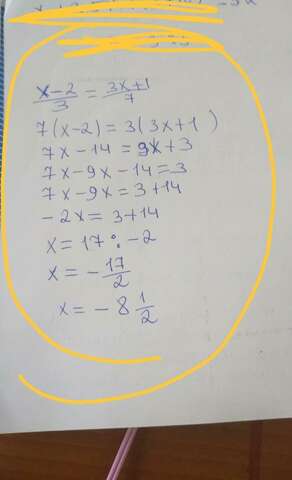 x-2/3 = 3x+1/7
7(x-2) = 3(3x+1)
7x-14 = 9x+3
7x-9x-14=3
7x-9x=3+14
-2x= 3+14
x= 17 : -2
x= - 17/2
x= - 8 1/2